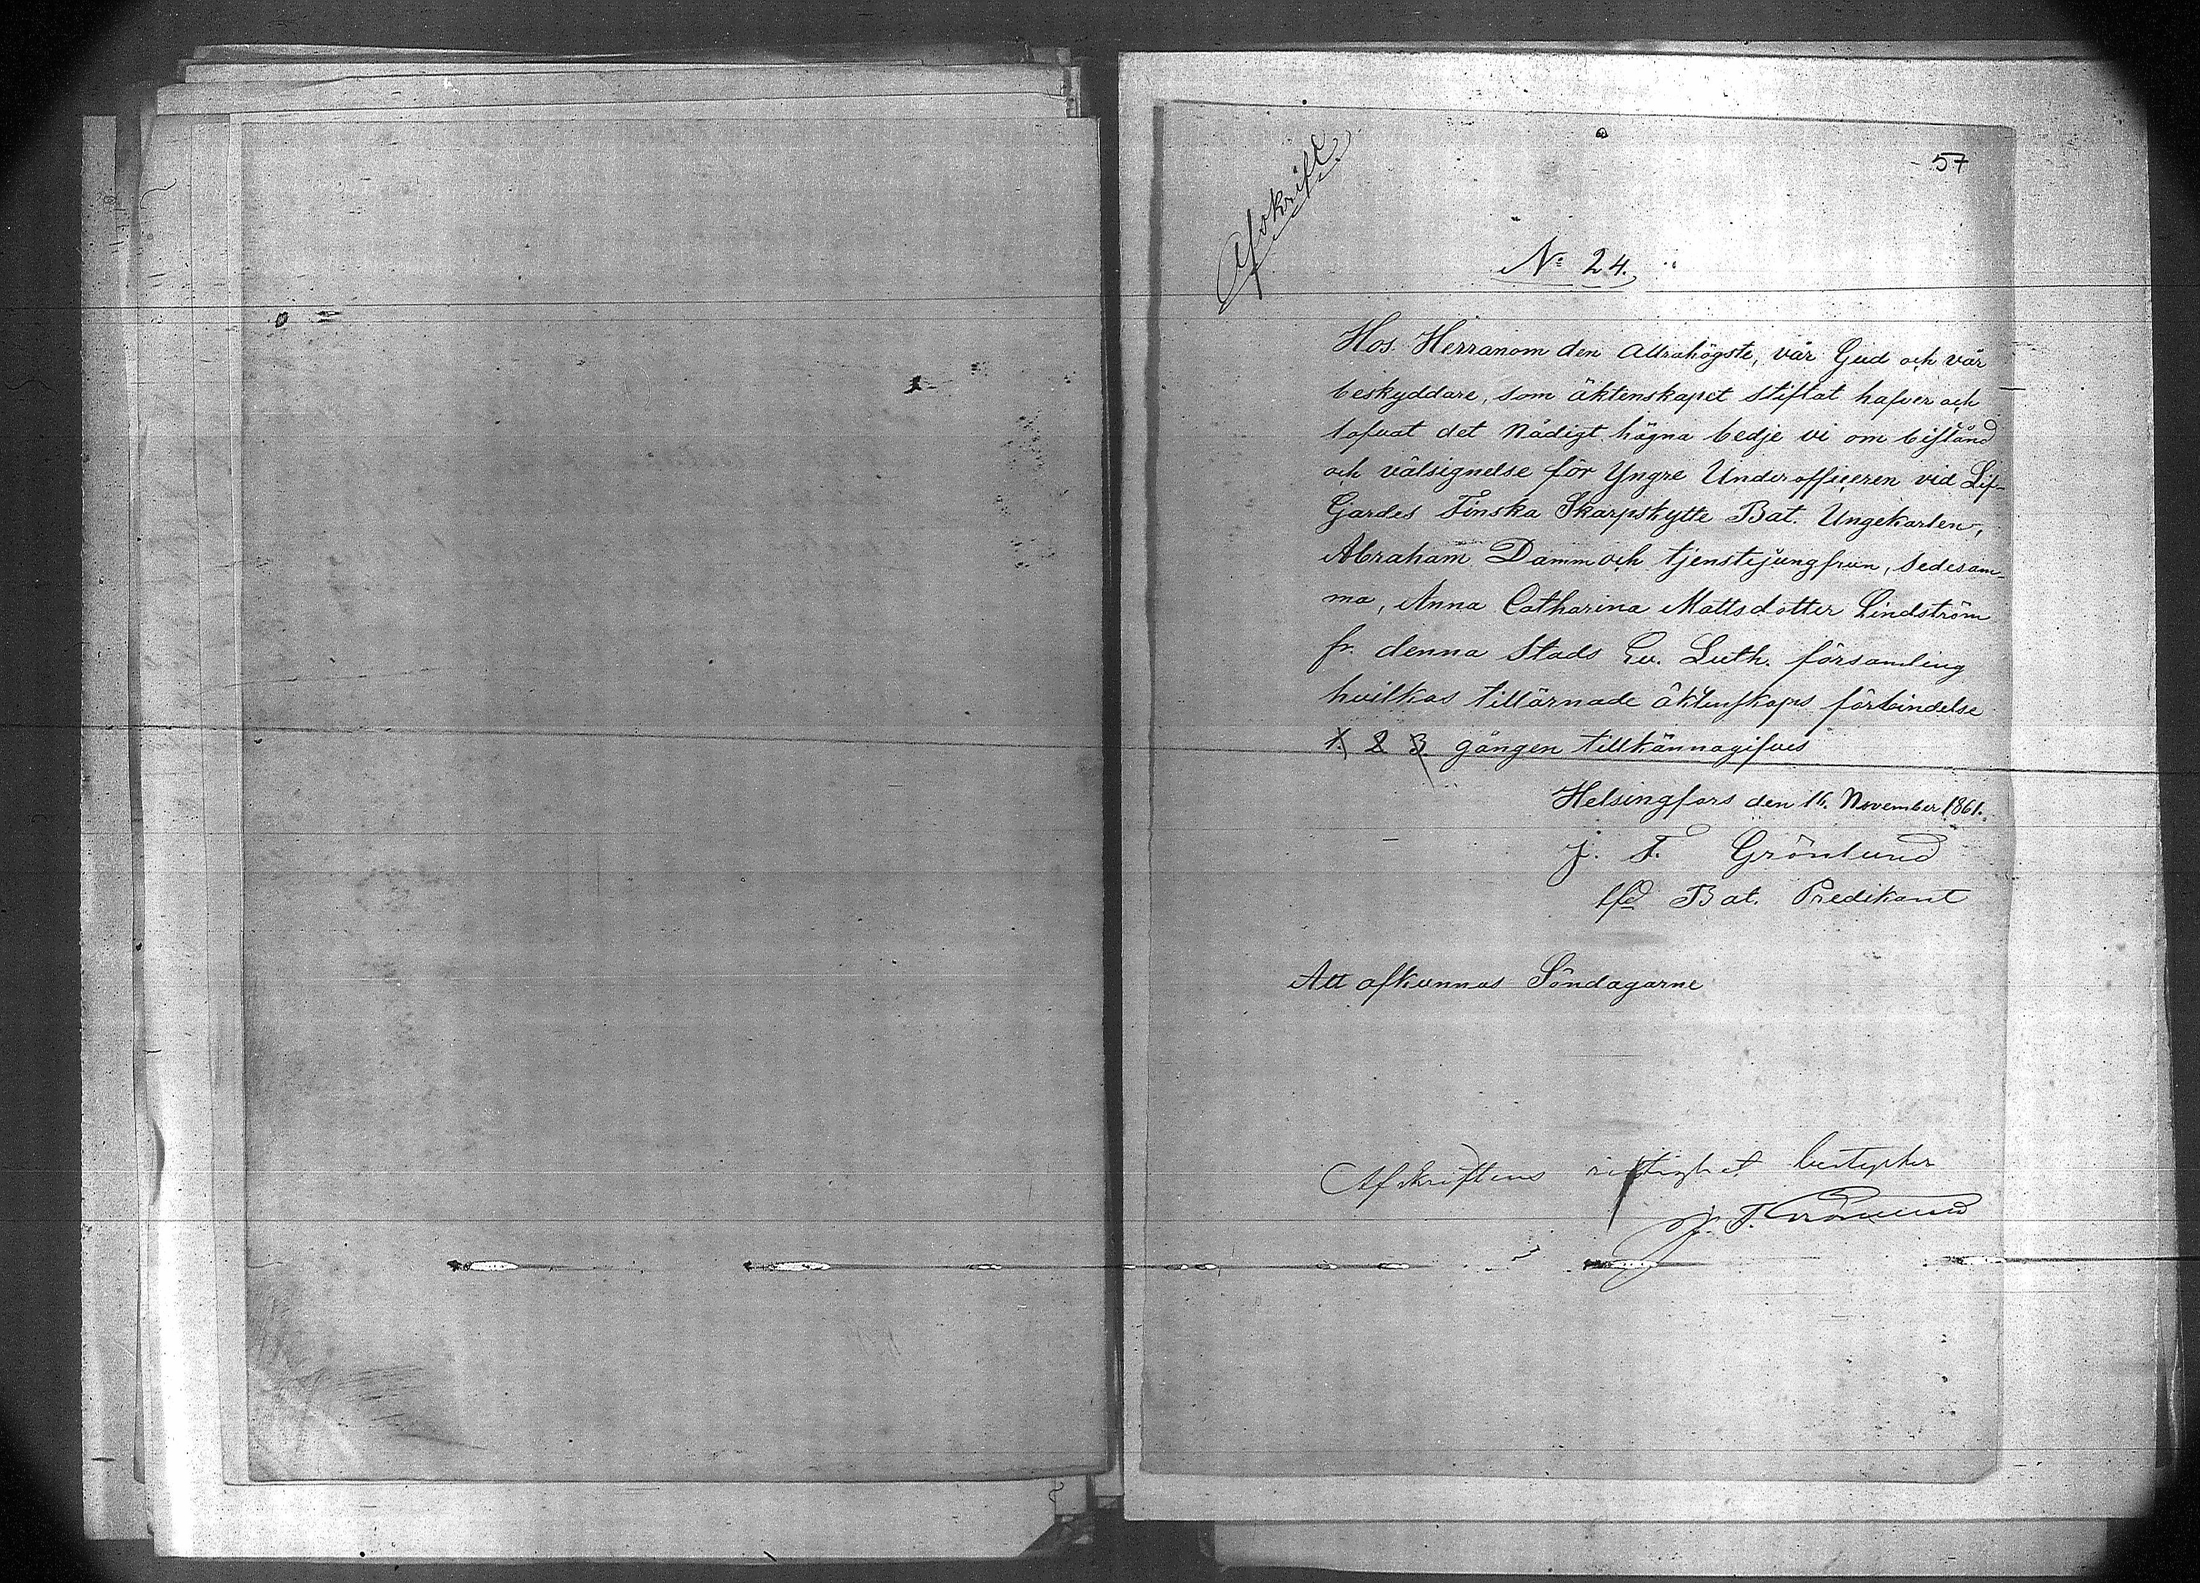 57
Afskrift
No 24.
Hos Herranom den Allrahögste, vår Gud och vår
beskyddare, som äktenskapet stiftat hafver och
lofvat det nådigt hägna bedje vi om bistånd
och välsignelse för Yngre Underofficeren vid Lif-
Gardes Finska Skarpskytte Bat. Ungekarlen,
Abraham Damm och tjenstejungfrun, sedesam-
ma, Anna Catharina Mattsdotter Lindström
fr. denna Stads Ev. Luth. församling
hvilkas tillärnade äktenskaps förbindelse
1. 2 3. gången tillkännagifves
Helsingfors den 16. November 1861.
J. T. Grönlund
tfd Bat. Predikant
Att afkunnas Söndagarne
Afskriftens riktighet bestyrker
J. T. Grönlund